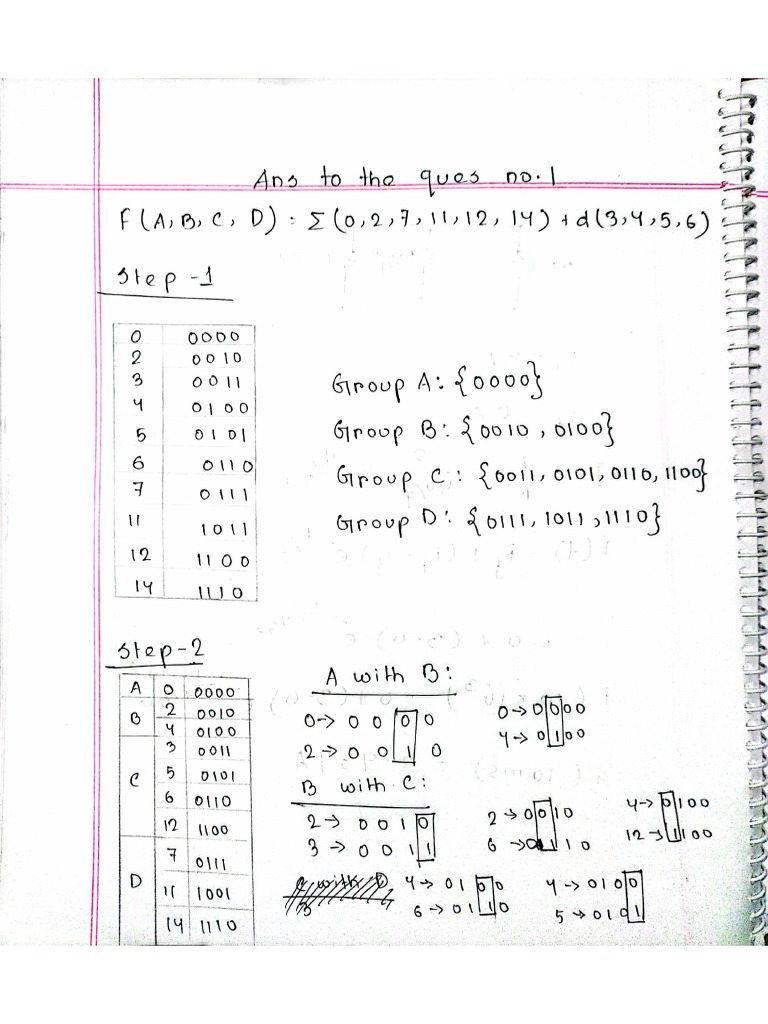 Ans to the ques no. 1
F (A, B, C, D) : Σ (0, 2, 7, 11, 12, 14) + d (3, 4, 5, 6)
Step - 1
0 0000
2 0010
3 0011
4 0100
5 0101
6 0110
7 0111
11 1011
12 1100
14 1110
Group A: {0000}
Group B: {0010, 0100}
Group C: {0011, 0101, 0110, 1100}
Group D: {0111, 1011, 1110}
Step - 2
A 0 0000
B 2 0010
4 0100
C 3 0011
5 0101
6 0110
12 1100
D 7 0111
11 1001
14 1110
A with B:
0 → 0 0 0 0
2 → 0 0 1 0
0 → 0000
4 → 0100
B with C:
2 → 0 0 1 0
3 → 0 0 1 1
2 → 0010
6 → 0110
4 → 0100
12 → 1100
4 → 0100
6 → 0110
4 → 0100
5 → 0101